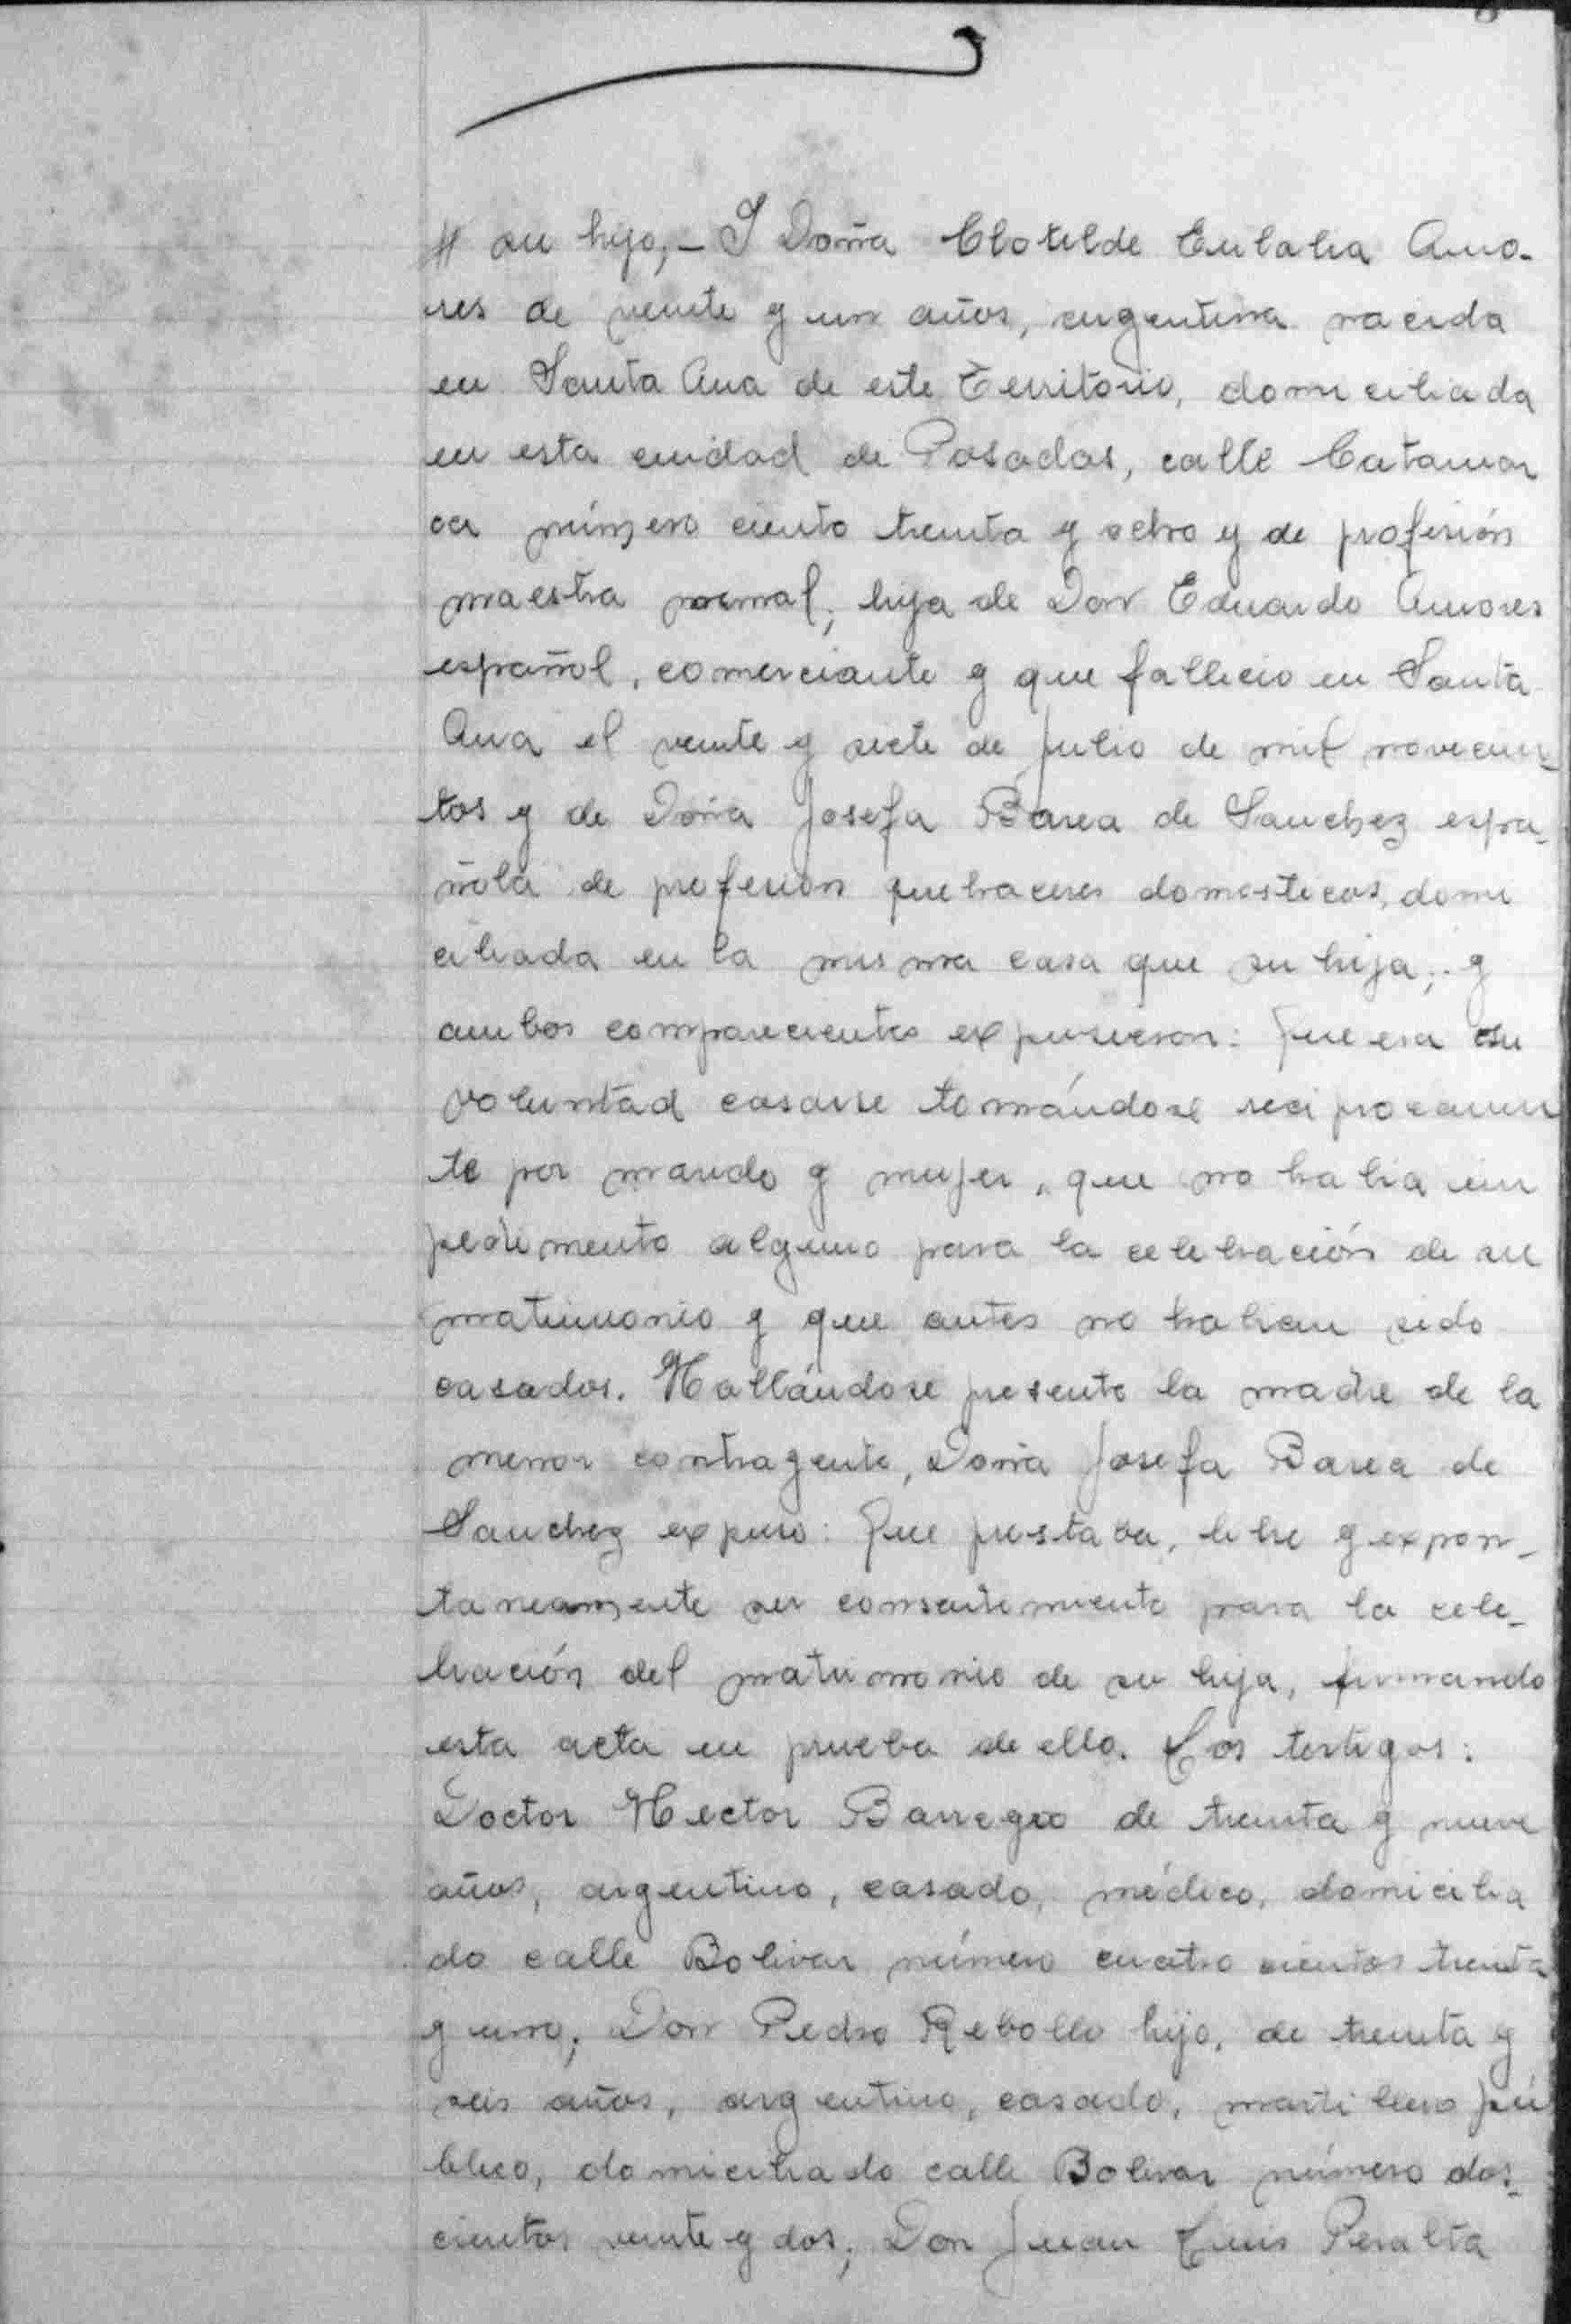 # su hijo,- Y Doña Clotilde Eulalia Amo-
res de veinte y un años, argentina nacida
en Santa Ana de este Territorio, domiciliada
en esta ciudad de Posadas, calle Catamar
ca número ciento treinta y ocho y de profesión
maestra normal; hija de Don Eduardo Amores
español, comerciante y que fallecio en Santa
Ana el veinte y siete de Julio de mil novecien-
tos y de Doña Josefa Barea de Sanchez espa-
ñola de profesion quehaceres domesticos, domi
ciliada en la misma casa que su hija; y
ambos comparecientes expusieron: Que era su
voluntad casarse tomándose reciprocamen
te por marido y mujer, que no habia im
pedimento alguno para la celebración de su
matrimonio y que antes no habian sido
casados. Hallándose presente la madre de la
menor contragente, Doña Josefa Barea de
Sanchez expuso: Que prestaba, libre y expon-
taneamente su consentimiento para la cele-
bración del matrimonio de su hija, firmando
esta acta en prueba de ello. Los testigos:
Doctor Hector Barreyro de treinta y nueve
años, argentino, casado, médico, domicilia
do calle Bolivar número cuatro cientos treinta
y uno; Don Pedro Rebollo hijo, de treinta y
seis años, argentino, casado, martillero pú
blico, domiciliado calle Bolivar número dos-
cientos veinte y dos; Don Juan Luis Peralta